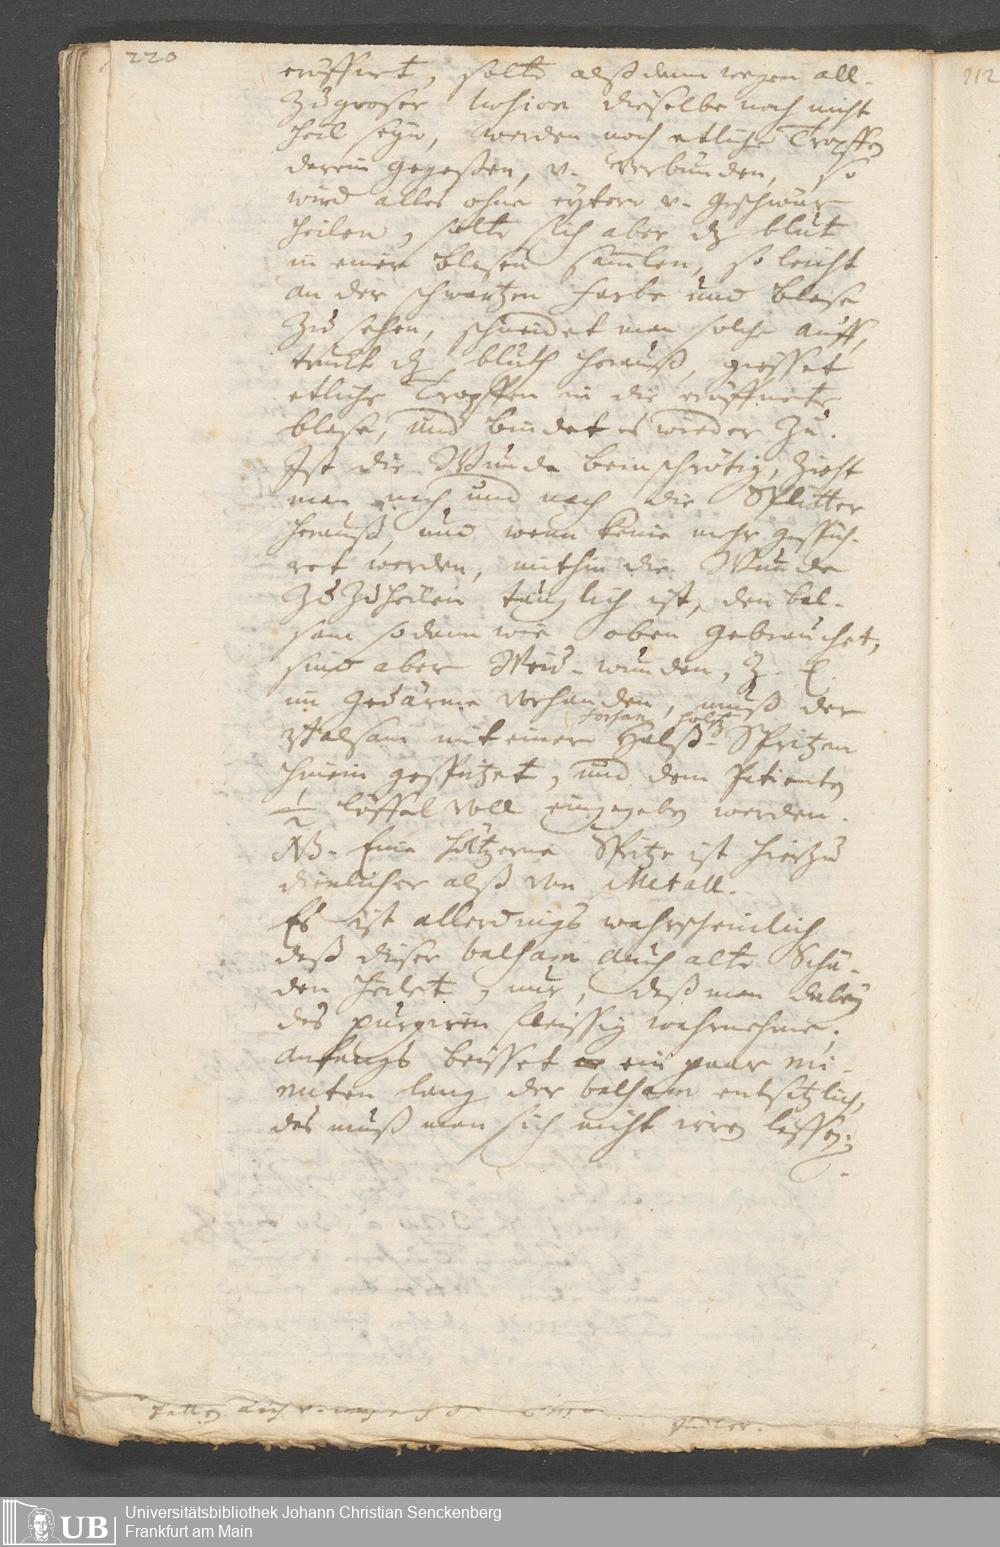 220
212
eröffnet, solte alßdann wegen all-
zugroser dieselbe noch nicht
heil seyn, werden noch etliche Tropffen
darein gegoßen, v. verbunden, so
wird alles ohne eytern v. Geschwür
heilen, solte sich aber dz blut
in einer blasen samlen, so leicht
an der schwartzen farbe und blase
zu sehen, schneidet man solche auff,
truckt dz bluth herauß, giesset
etliche Tropffen in die eröffnete
blase, und bindet es wieder zu.
Ist die Wunde beinschrötig, zieht
man nach und nach die Splitter
herauß, und wenn keine mehr gespüh-
ret werden, mithin die Wunde
zuzuheilen tauglich ist, den bal-
sam sodann wie oben gebrauchet,
sind aber Weid-wunden, z. E.
im Gedärme vorhanden, muß der
Balsam mit einer Spritzen
hinein gespritzet, und dem Patienten
1/2 löffel voll eingegeben werden.
NB. Eine höltzerne Spritze ist hierzu
dienlicher alß von Metall.
Es ist allerdings wahrscheinlich
daß dieser balsam auch alte Schä-
den heilet, nur, daß man dabey
des purgiren fleissig wahrnehme.
anfangs beisset ein paar mi-
nuten lang der balsam entsetzlich,
das muß man sich nicht irren lassen.
Universitätsbibliothek Johann Christian Senckenberg
UB Frankfurt am Main